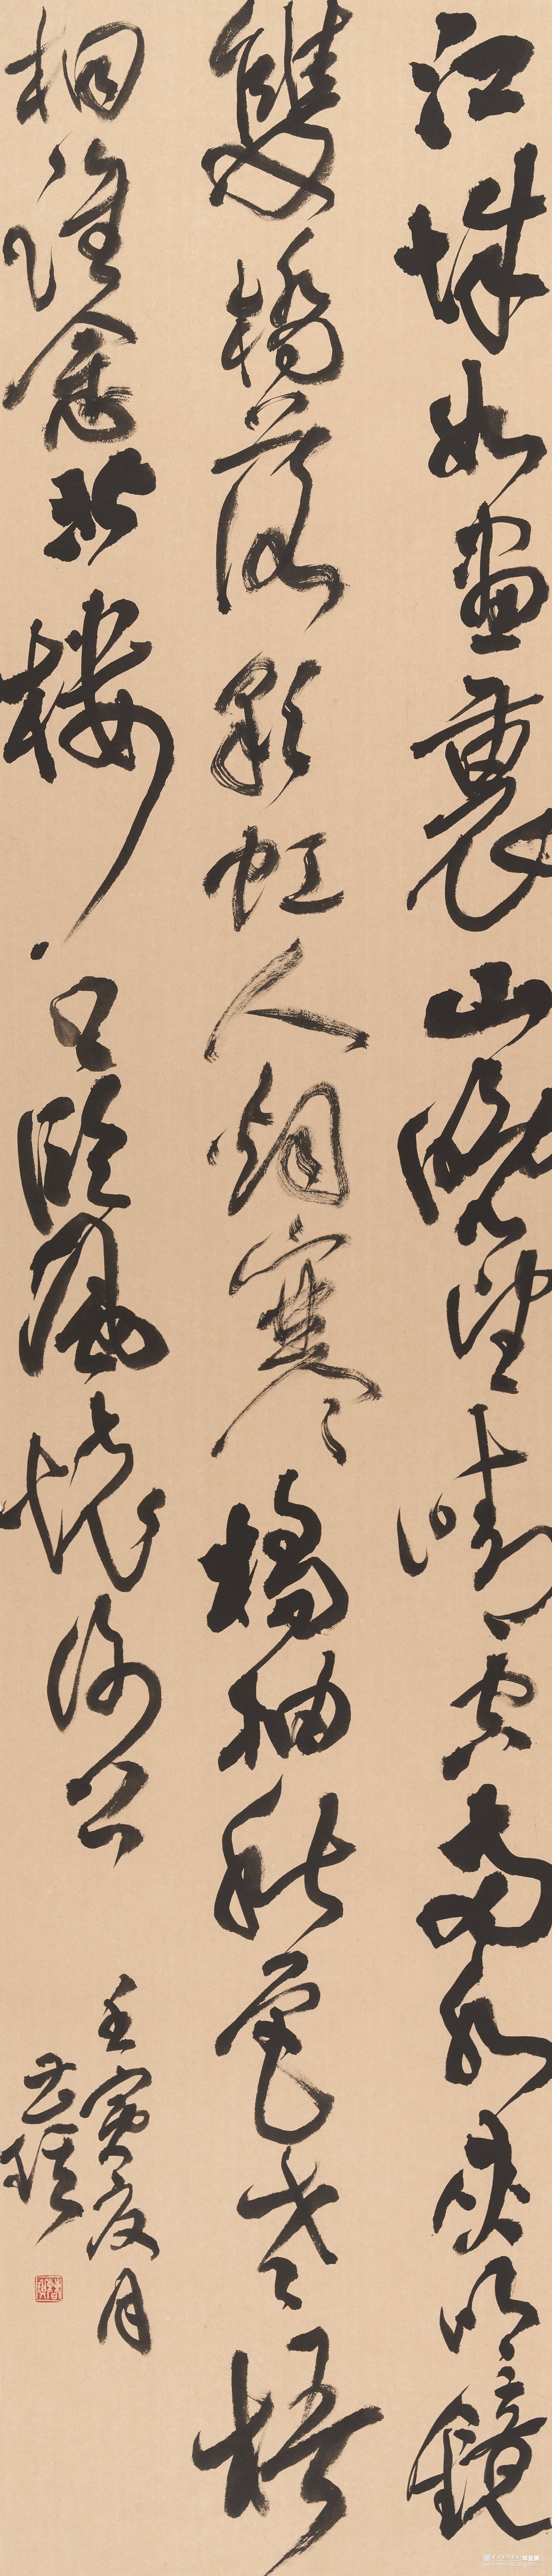 江城如畫裏山曉望晴空兩水夾明鏡
雙橋落彩虹人烟寒橘柚秋色老梧
桐誰念北樓上臨風懷謝公
壬寅夏月